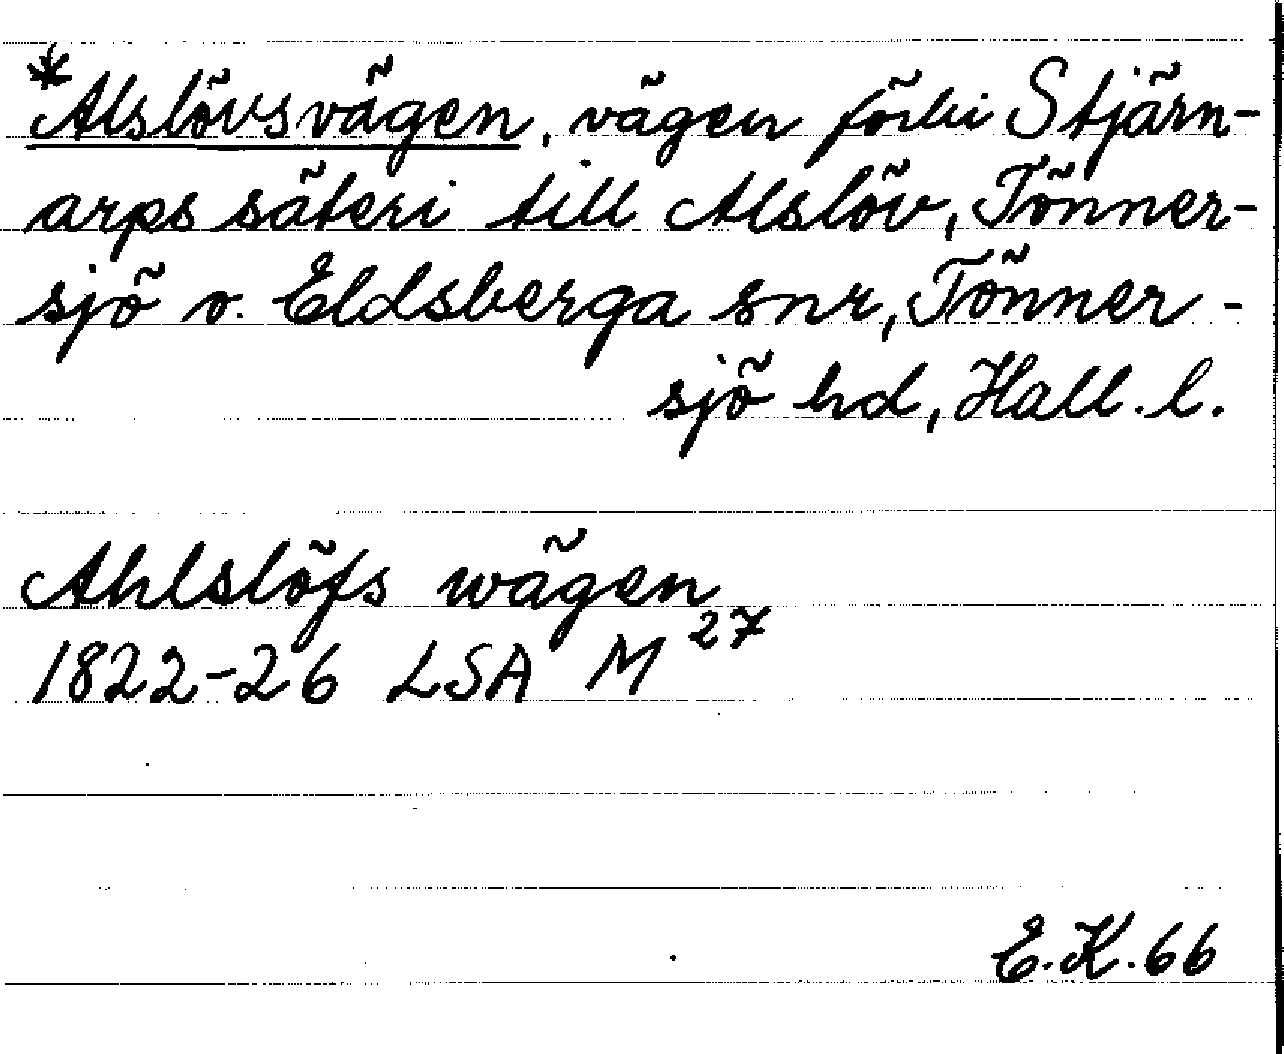 *Alslövsvägen, vägen förbi Stjärn-
arps säteri till Alslöv, Tönner-
sjö o. Eldsberga snr, Tönner-
sjö hd, Hall. l.
Ahlslöfs wägen
1822-26 LSA M 27
E.K.66